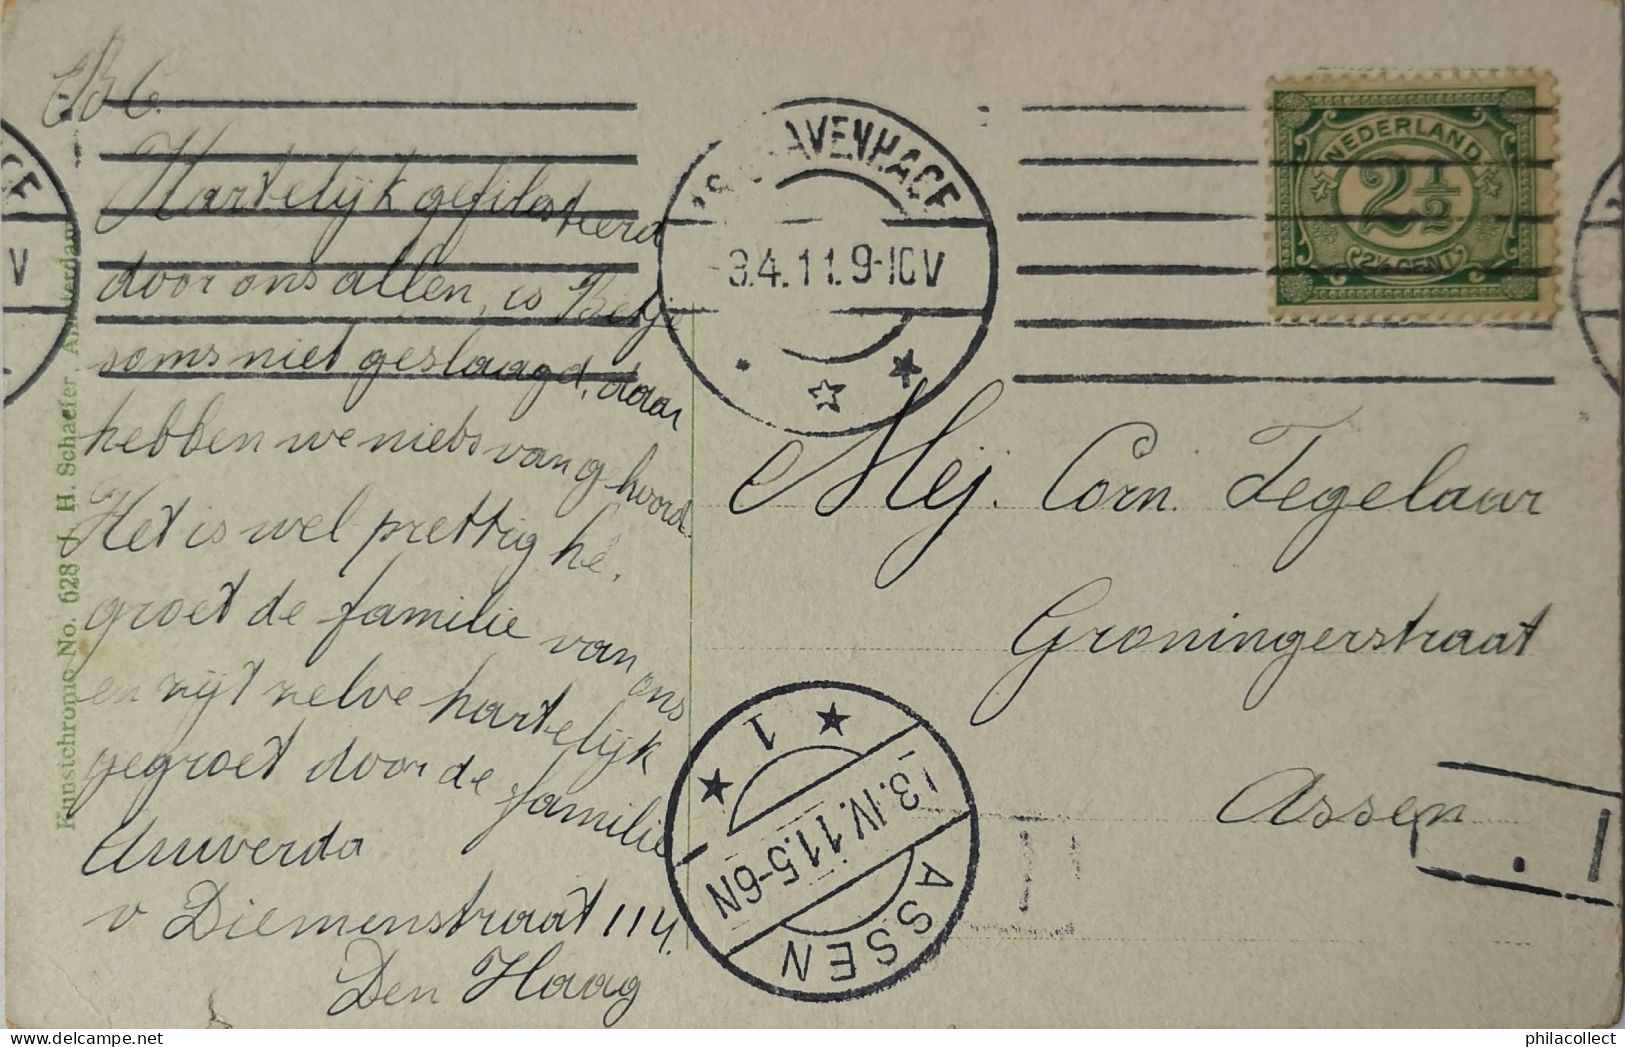 C.B.C.
Hartelijk gefilesteerd
door ons allen, is Betje
soms niet geslaagd, daar
hebben we niets van g. hoord.
Het is wel prettig hê.
groet de familie van ons
en zijt zelve hartelijk
gegroet door de familie
Auwerda
v Diemenstraat 114.
Den Haag
Kunstchromo No. 628 J. H. Schaefer, Amsterdam
'S GRAVENHAGE
3.4.11.9-10V
NEDERLAND
2½
2½ CENT
Mej. Corn. Tegelaar
Groningerstraat
Assen
1
3.IV.11.5-6N
ASSEN
philacollect